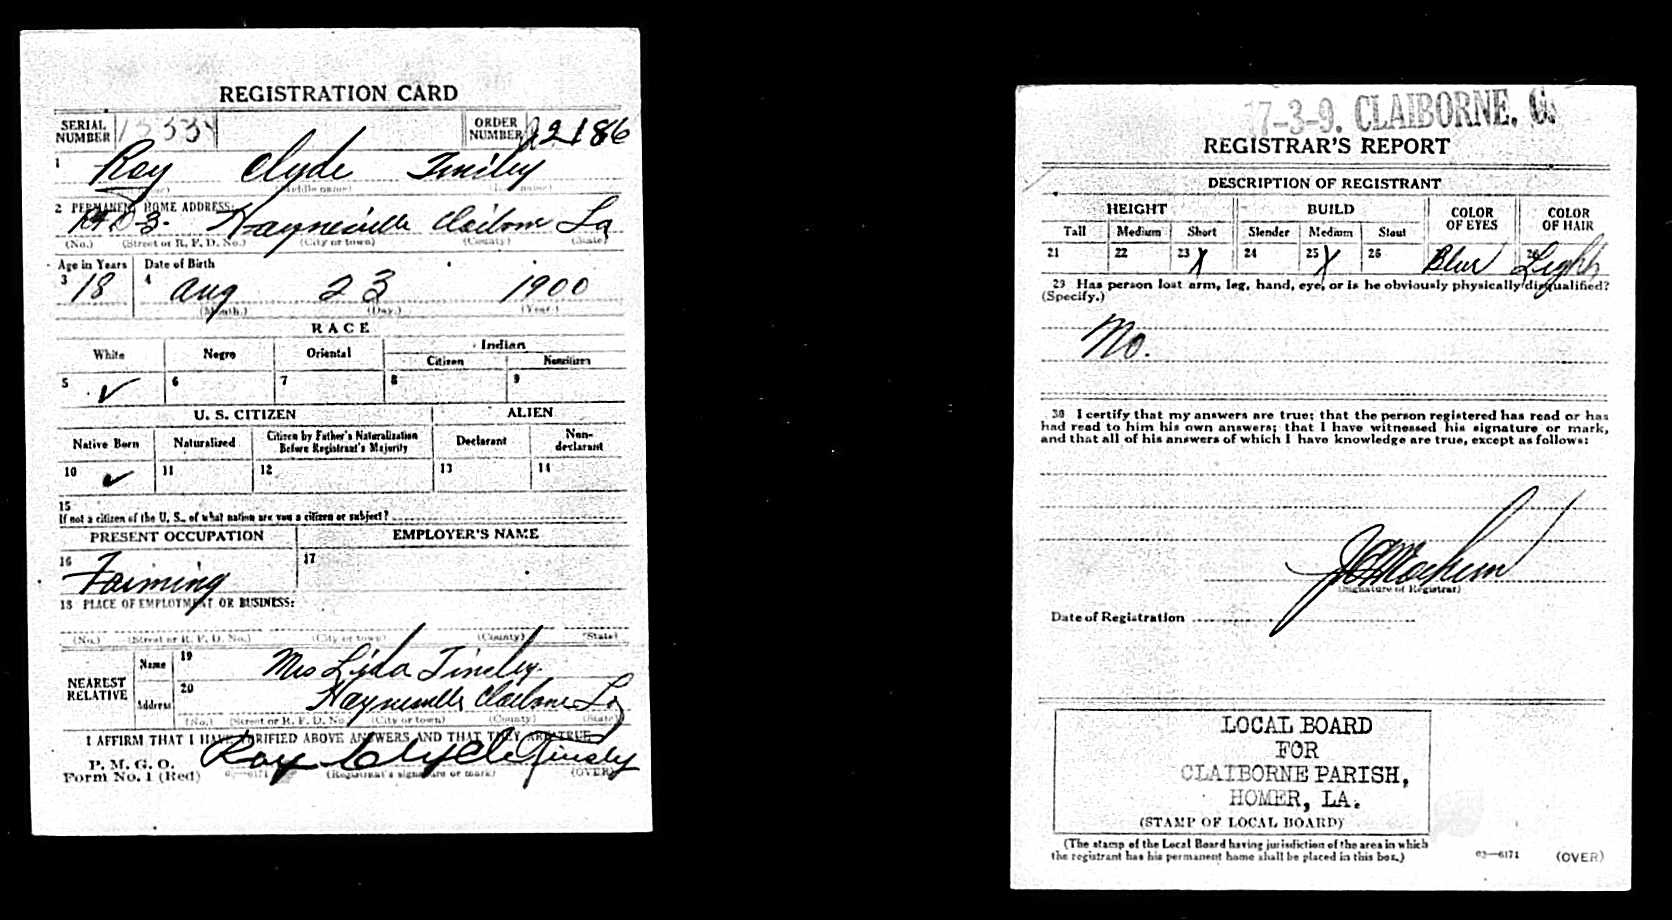 REGISTRATION CARD
SERIAL NUMBER
ORDER NUMBER 2186
1 Roy Clyde Tinsley
(Middle name)
2 PERMANENT HOME ADDRESS:
R.F.D 3. Haynesville Claiborne La
(No.) (Street or R. F. D. No.) (City or town) (County) (State)
Age in Years Date of Birth
3 18 4 Aug 23 1900
(Month.) (Day.) (Year.)
RACE
White Negro Oriental Indian
Citizen Noncitizen
5 ✓ 6 7 8 9
U. S. CITIZEN ALIEN
Native Born Naturalized Citizen by Father's Naturalization Before Registrant's Majority Declarant Non-declarant
10 ✓ 11 12 13 14
15
If not a citizen of the U. S., of what nation are you a citizen or subject?
PRESENT OCCUPATION EMPLOYER'S NAME
16 Farming 17
18 PLACE OF EMPLOYMENT OR BUSINESS:
(No.) (Street or R. F. D. No.) (City or town) (County) (State)
NEAREST RELATIVE
Name 19 Mrs Lida Tinsley.
Address 20 Haynesville Claiborne La
(No.) (Street or R. F. D. No.) (City or town) (County) (State)
I AFFIRM THAT I HAVE VERIFIED ABOVE ANSWERS AND THAT THEY ARE TRUE
P. M. G. O.
Form No. 1 (Red) Roy Clyde Tinsley
(Registrant's signature or mark) (OVER)
17-3-9. CLAIBORNE. C.
REGISTRAR'S REPORT
DESCRIPTION OF REGISTRANT
HEIGHT BUILD COLOR OF EYES COLOR OF HAIR
Tall Medium Short Slender Medium Stout
21 22 23 X 24 25 X 26 Blue Light
29 Has person lost arm, leg, hand, eye, or is he obviously physically disqualified?
(Specify.)
No.
30 I certify that my answers are true; that the person registered has read or has
had read to him his own answers; that I have witnessed his signature or mark,
and that all of his answers of which I have knowledge are true, except as follows:
(Signature of Registrar)
Date of Registration
LOCAL BOARD
FOR
CLAIBORNE PARISH,
HOMER, LA.
(STAMP OF LOCAL BOARD)
(The stamp of the Local Board having jurisdiction of the area in which
the registrant has his permanent home shall be placed in this box.)
03—6171 (OVER)